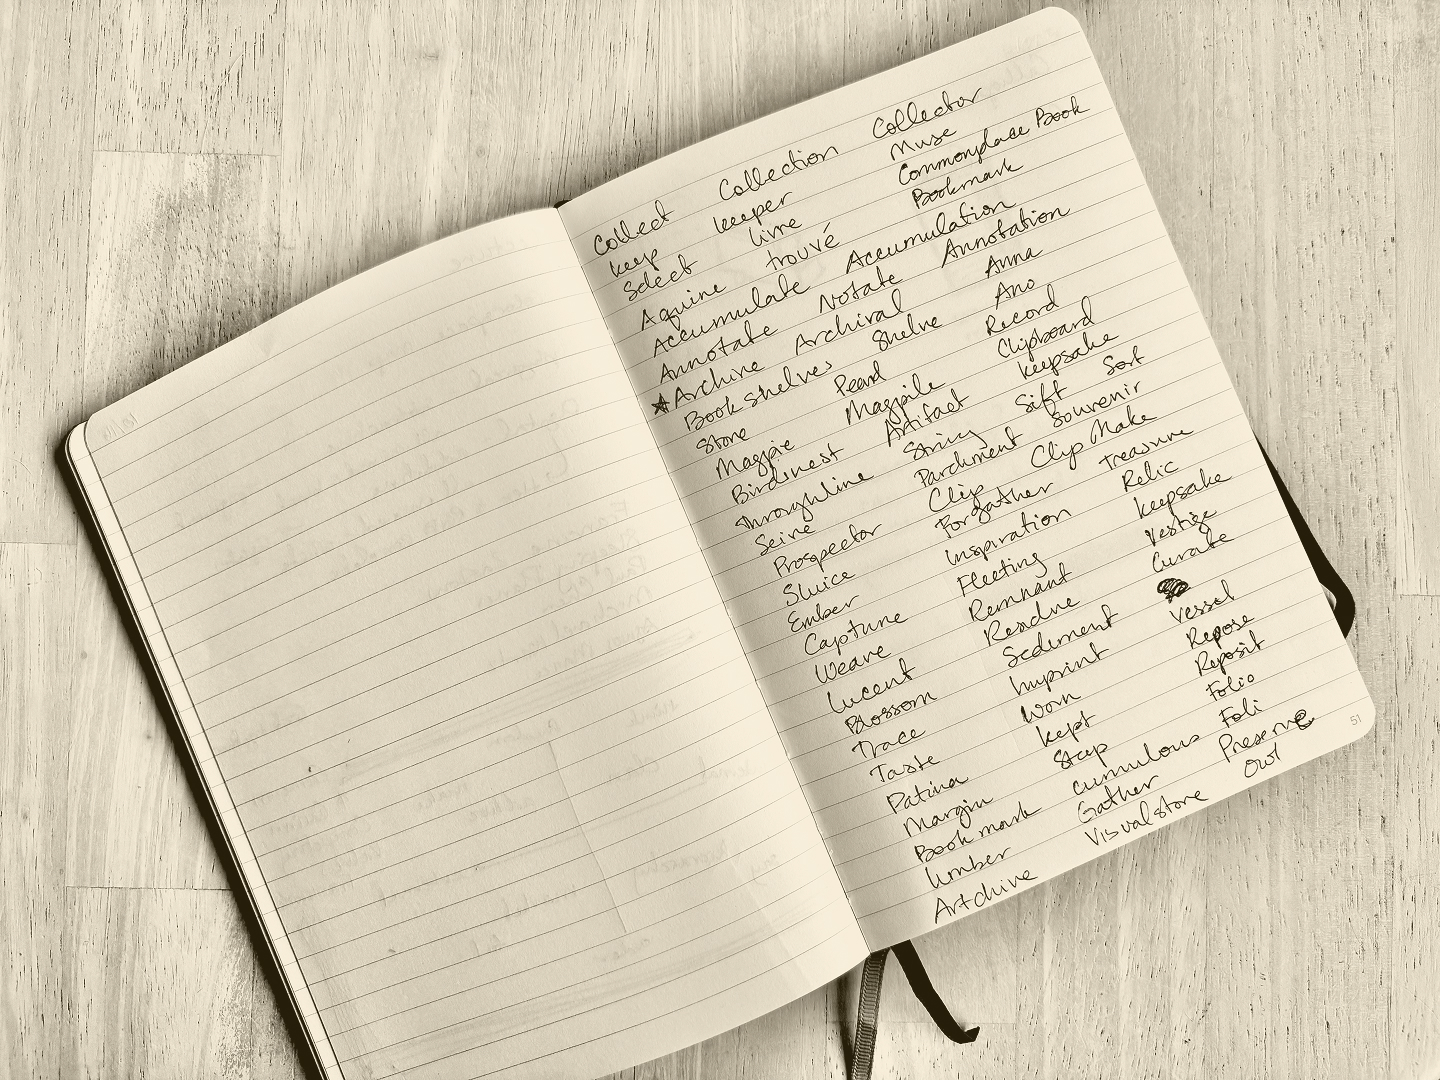 Collect Collection Collector
keep keeper Muse
Select livre Commonplace Book
Aquire trouvé Bookmark
Accumulate Accumulation
Annotate Notate Annotation
★Archive Archival Anna
Bookshelves Shelve Ano
Store Pearl Record
Magpie Magpile Clipboard
Birdsnest Artifact keepsake
Throughline String Sift Sort
Seine Parchment Souvenir
Prospector Clip Clip Make
Sluice Forgather Treasure
Ember Inspiration Relic
Capture Fleeting keepsake
Weave Remnant Vestige
Lucent Residue Curate
Blossom Sediment
Trace Imprint Vessel
Taste Worn Repose
Patina kept Reposit
Margin Folio
Bookmark cumulous Foli
Umber Gather Preserve
Artchive Visualstore Owl
51